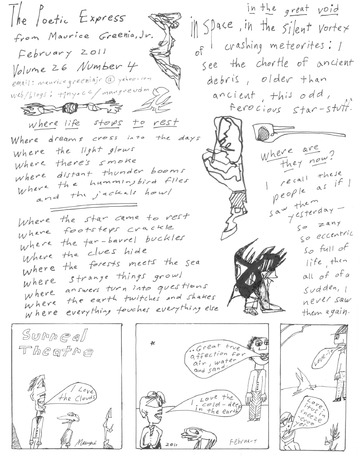 The Poetic Express
from Maurice Greenia, Jr.
February 2011
Volume 26 Number 4
in the great void
in Space, in the Silent Vortex
of crashing meteorites: I
see the chortle of ancient
debris, older than
ancient, this odd,
ferocious star-stuff
where life stops to rest
Where dreams cross into the days
Where the light glows
Where there's smoke
Where distant thunder booms
Where the hummingbird flies
and the jackals howl
Where the star came to rest
Where footsteps crackle
Where the tar-barrel buckles
Where the clues hide
Where the forests meets the sea
Where strange things grows
Where answers turn into questions
Where the earth twitches and shakes
Where everything touches everything else
Where are
they now?
I recall these
people as if I
saw them
yesterday—
so zany
so eccentric
so full of
life, then
all of a
sudden, I
never saw
them again.
Surreal
Theatre
I Love
the Clouds
Great true
affection for
air, water
and sand
I Love the
cold-deep
in the earth
2011
February